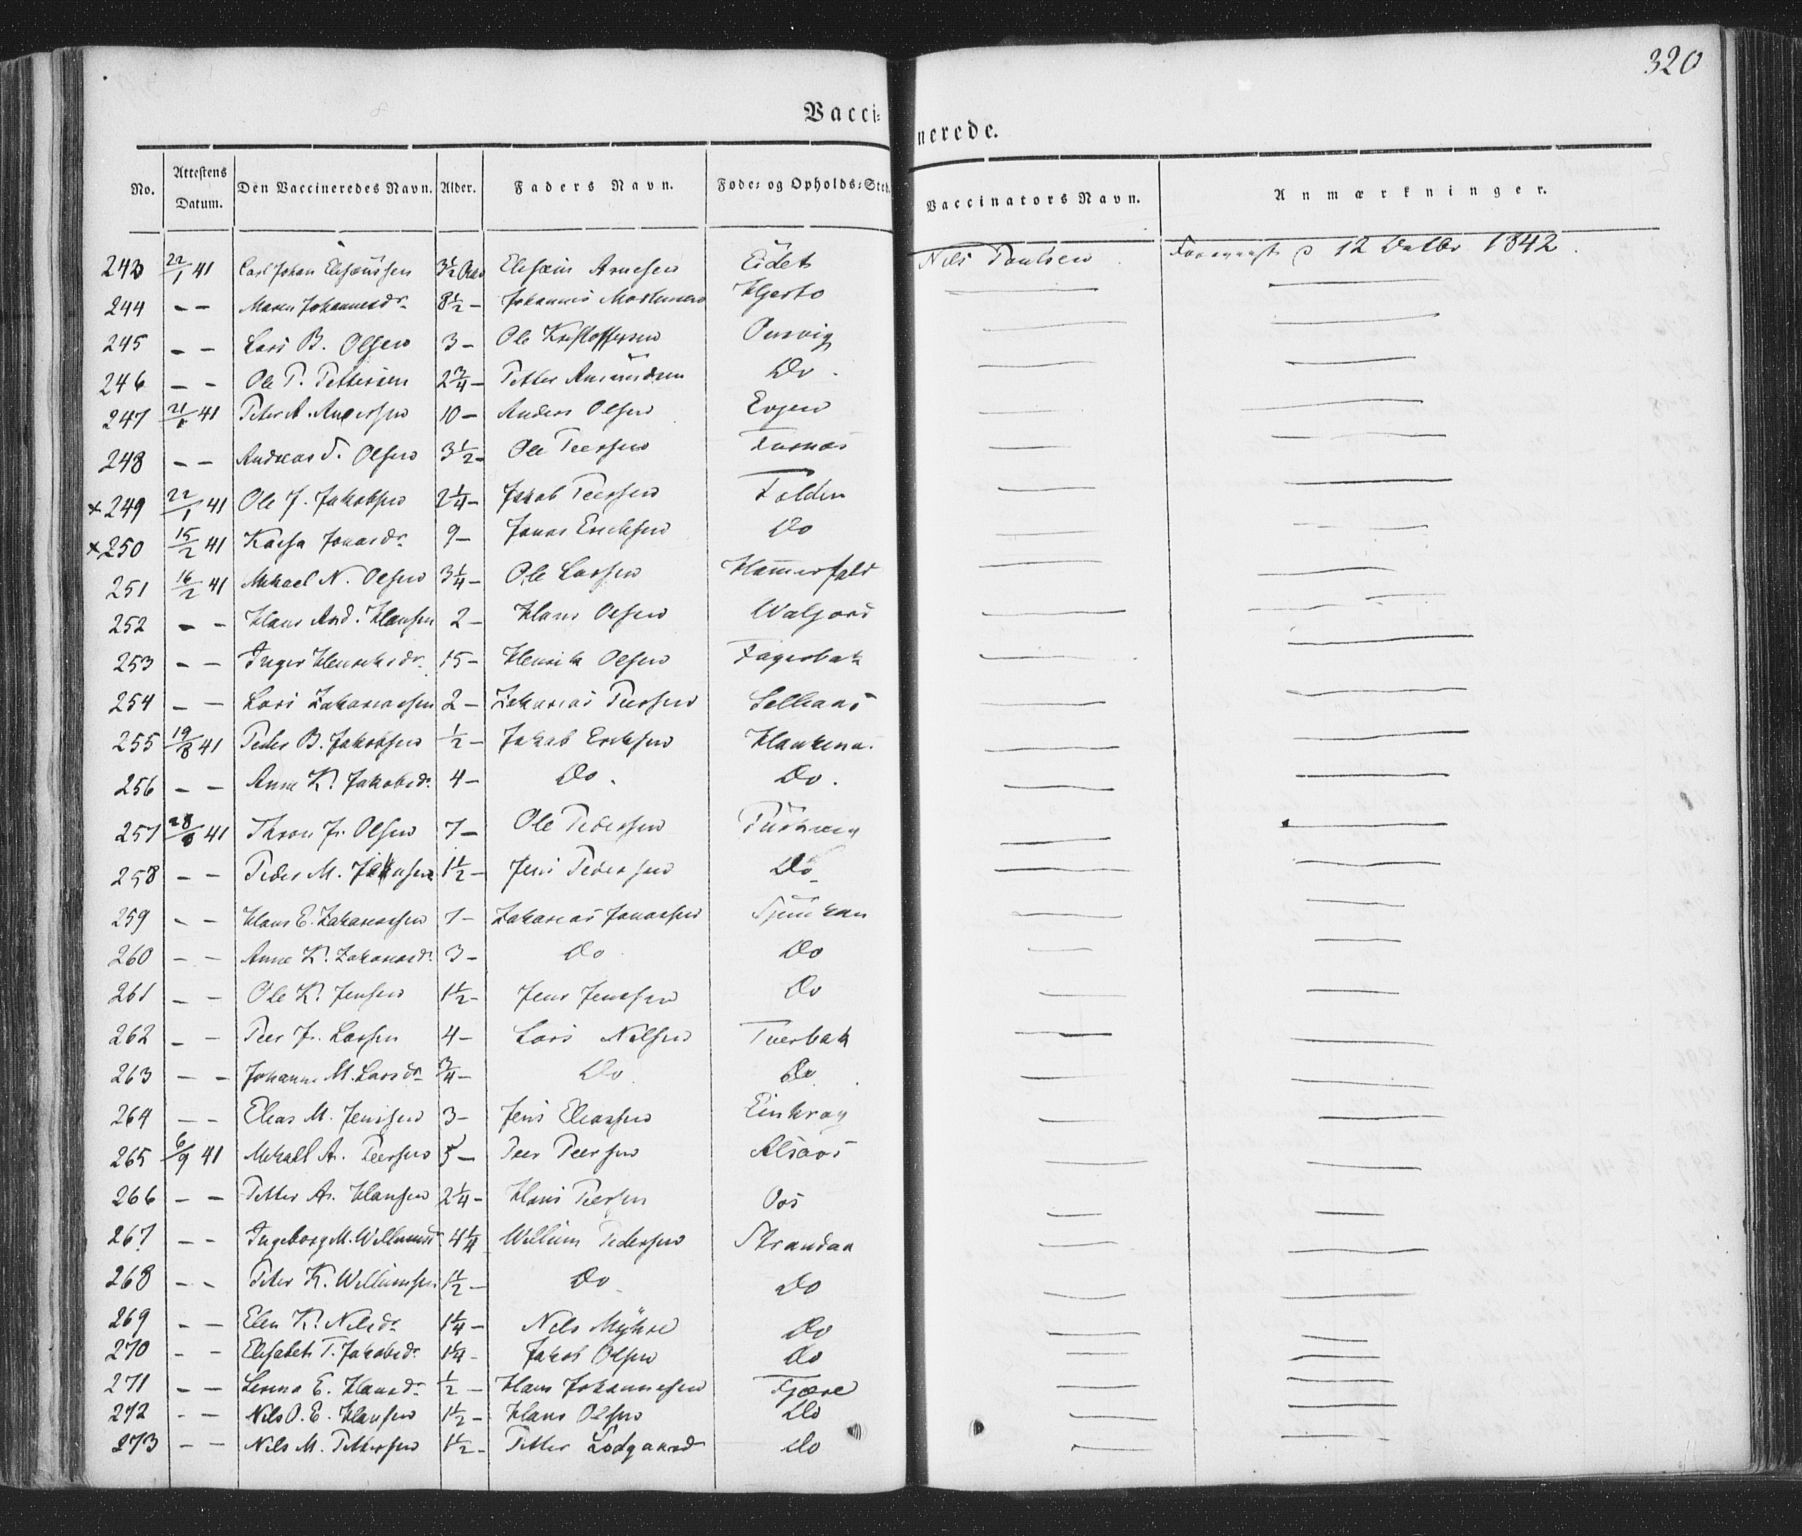 320
Vacci= nerede.
No. Attestens Datum. Den Vaccineredes Navn. Alder. Faders Navn. Føde= og Opholds=Sted. Vaccinators Navn. Anmærkninger.
243 22/1 41 Carl Johan 3 1/2 Arnesen Eidet Nils Poulsen 12 Octbr 1842.
244 – – Maren Johannesdr 8 1/2 – Johannes Mortensen Hjerto — —
245 – – Lars B. Olsen 3 – Ole Kristoffersen — —
246 – – Ole P. Pettersen 2 3/4 – Petter Do. — —
247 41 Peter A. Andersen 10 – Anders Olsen Evjen — —
248 – – Andreas Olsen 3 1/2 – Ole Peersen — —
× 249 22/1 41 Ole J. Jakobsen 2 1/4 – Jakob Peersen Folden — —
× 250 15/2 41 Jonasdr 9 – Jonas Ericksen Do — —
251 16/2 41 Mikael N. Olsen 3 1/4 – Ole Larsen — —
252 – – Hans And. Hansen 2 – Hans Olsen — —
253 – – Inger Henrikdr. 15 – Henrik Olsen Fagerbak — —
254 – – Lars Zakariasen 2 – Zakarias Peersen — —
255 19/8 41 Peder B. Jakobsen 1/2 – Jakob Ericksen — —
256 – – Anne K. Jakobsdr 4 – Do. Do. — —
257 28/8 41 Olsen 7 – Ole Pedersen — —
258 – – Peder M. Jensen 1 1/2 – Jens Pedersen Do — —
259 – – Hans E. Zakariasen 7 – Zakarias Jonassen — —
260 – – Anne K. Zakariasdr. 3 – Do Do — —
261 – – Ole K. Jensen 1 1/2 – Jens Jensen Do — —
262 – – Peer J. Larsen 4 – Lars Nilsen Tverbak — —
263 – – Johanne M. Larsdr 3/4 – Do Do — —
264 – – Elias M. Jensen 3 – Jens Eliassen — —
265 6/9 41 Mikael A. Peersen 5 – Peer Peersen Alsaas — —
266 – – Petter A. Hansen 2 1/4 – Hans Peersen Oos — —
267 – – Ingeborg M. 4 1/4 Willum Pedersen Strandaa — —
268 – – Peter K. Willumsen 1 1/2 – Do Do — —
269 – – Elen K. Nilsdr 1 1/4 – Nils Myhre Do — —
270 – – Elisabeth T. Jakobsdr 1 1/4 – Jakob Olsen Do — —
271 – – E. Hansdr 1/2 – Hans Johannesen Fjære — —
272 – – Nils O. E. Hansen 1 1/2 – Hans Olsen Do — —
273 – – Nils M. Pettersen 1 1/2 – Petter Lodgaard Do — —